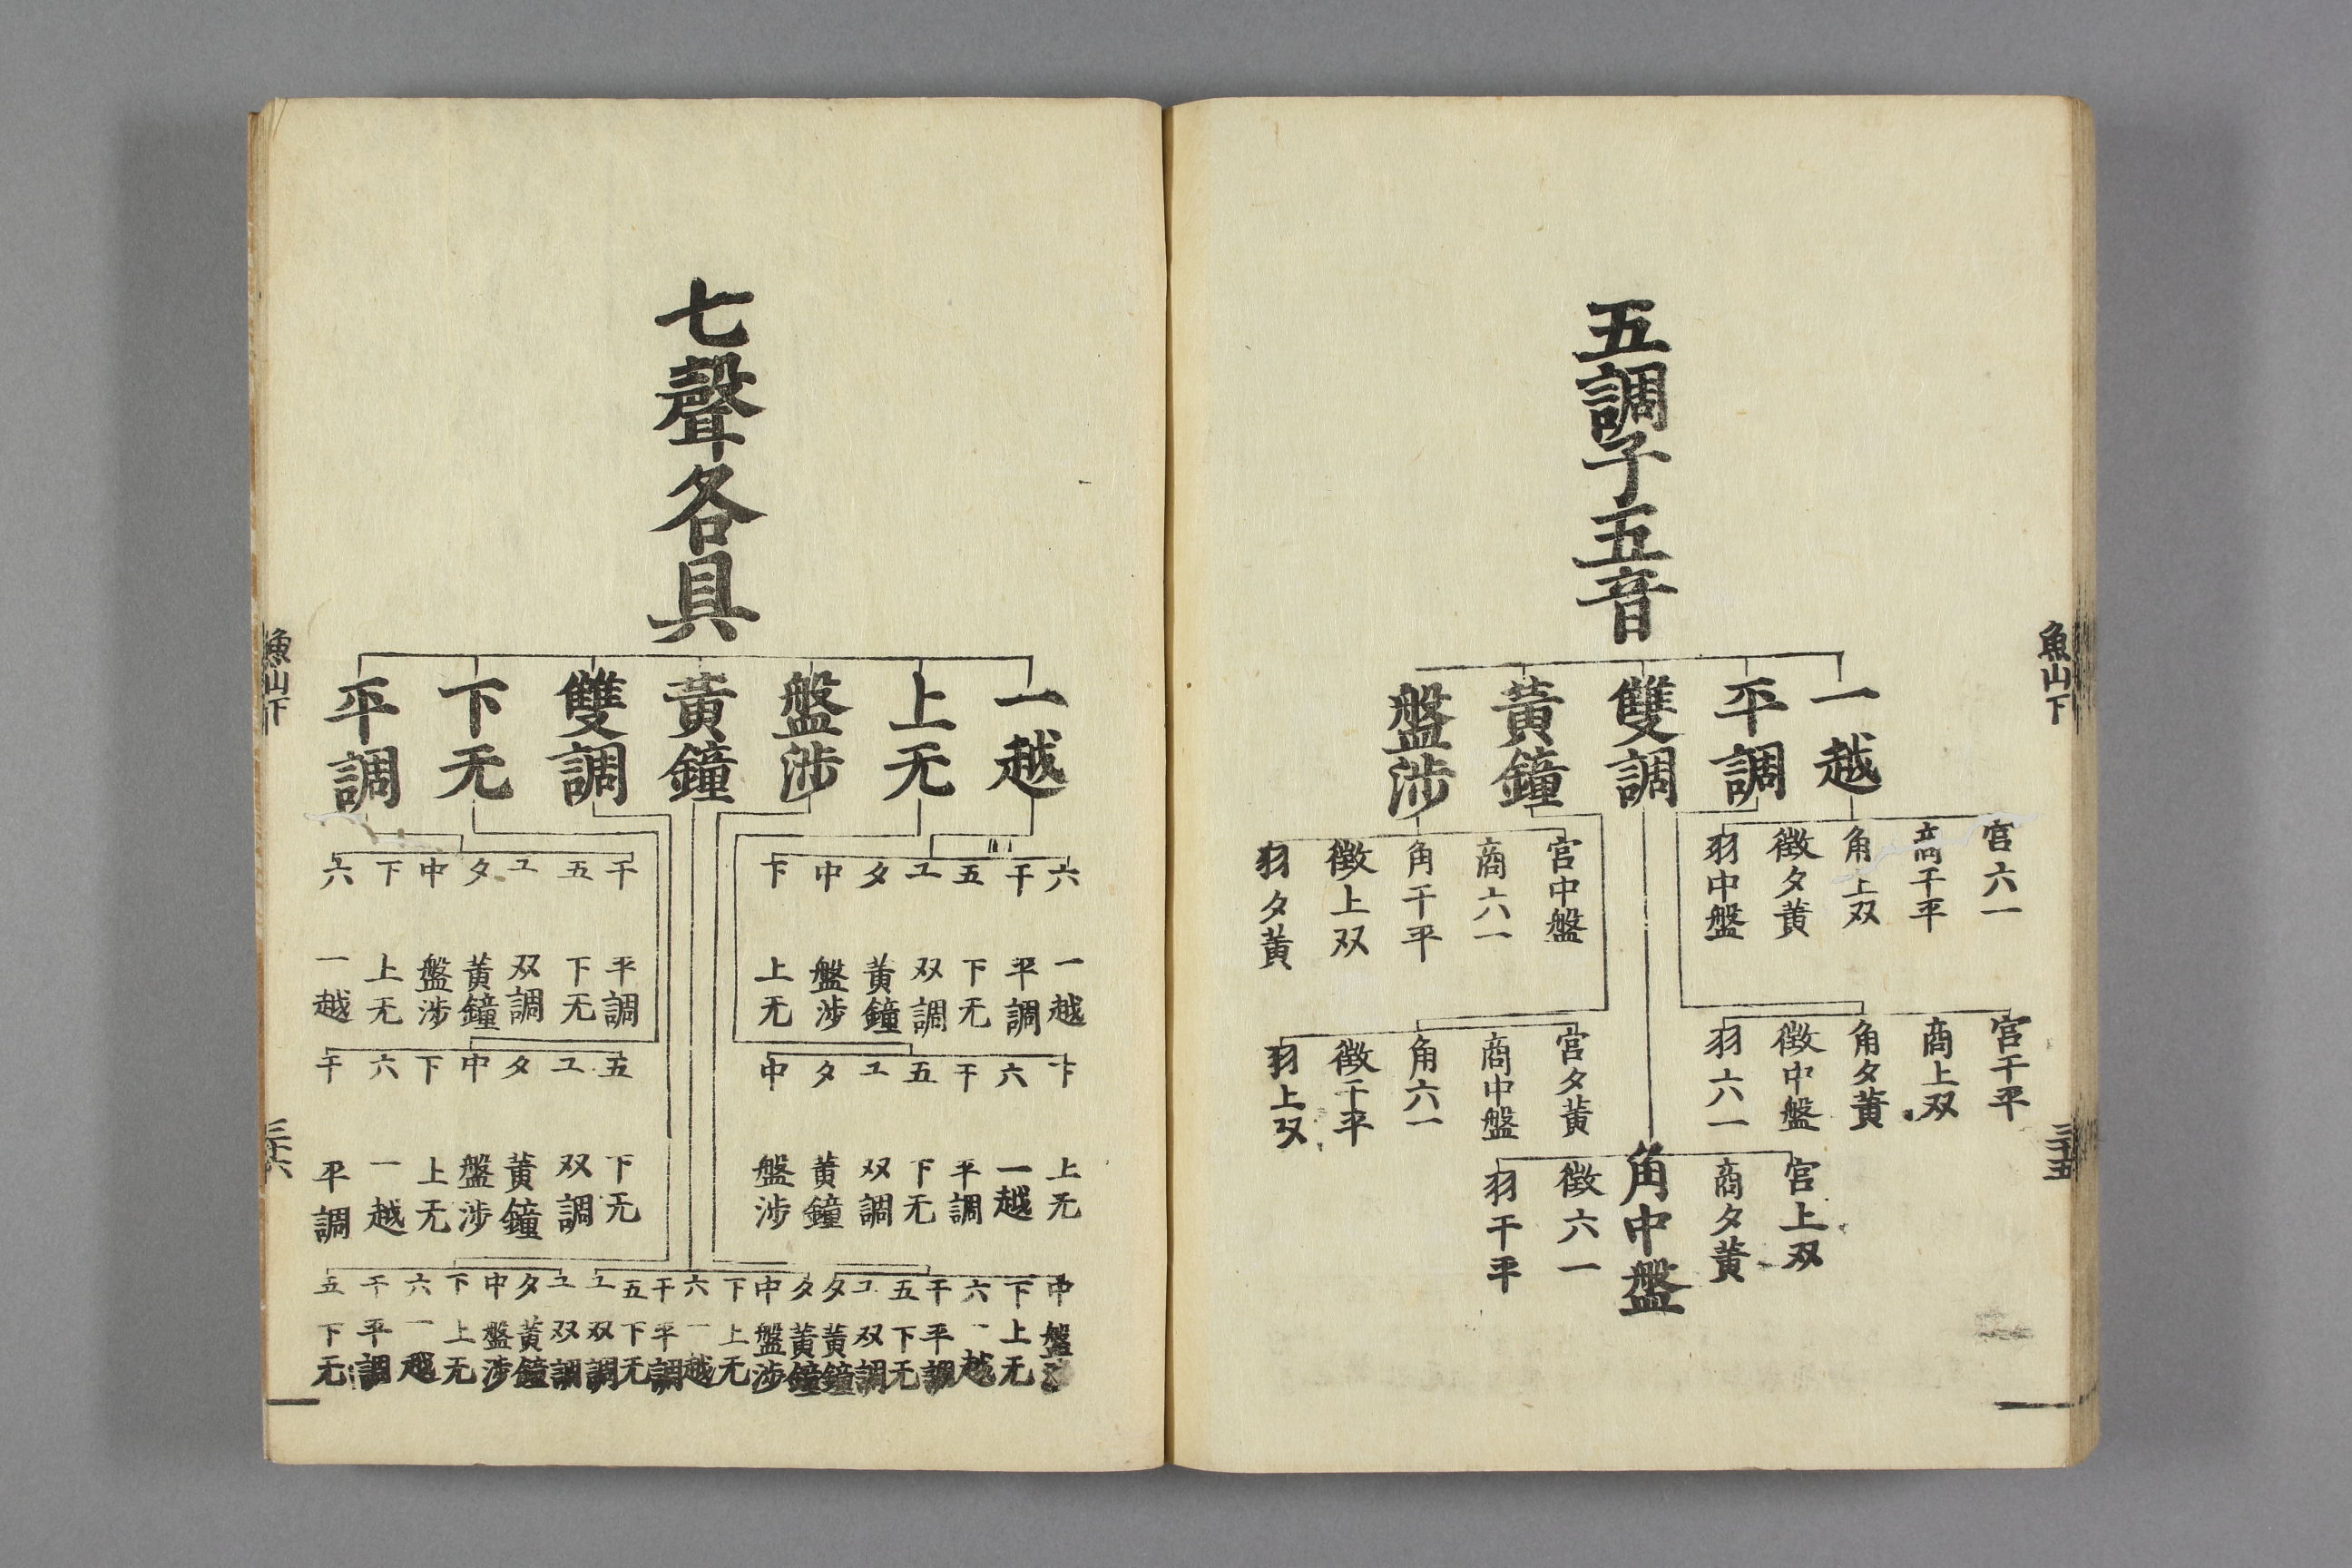 魚山下
三十五
五調子五音
一越
平調
雙調
黃鐘
盤渉
宮六一
商干平
角上双
徵夕黄
羽中盤
宮中盤
商六一
角干平
徵上双
羽夕黄
宮干平
商上双
角夕黄
徵中盤
羽六一
宮夕黄
商中盤
角六一
徵干平
羽上双
宮上双
商夕黄
角中盤
徵六一
羽干平
七聲各具
一越
上无
盤渉
黃鐘
雙調
下无
平調
六 一越
干 平調
五 下无
ユ 双調
夕 黄鐘
中 盤渉
下 上无
干 平調
五 下无
ユ 双調
夕 黄鐘
中 盤渉
下 上无
六 一越
下 上无
六 一越
干 平調
五 下无
ユ 双調
夕 黄鐘
中 盤渉
五 下无
ユ 双調
夕 黄鐘
中 盤渉
下 上无
六 一越
干 平調
中 盤
下 上无
六 一越
干 平調
五 下无
ユ 双調
夕 黄鐘
夕 黄鐘
中 盤渉
下 上无
六 一越
干 平調
五 下无
ユ 双調
ユ 双調
夕 黄鐘
中 盤渉
下 上无
六 一越
干 平調
五 下无
魚山下
三十六